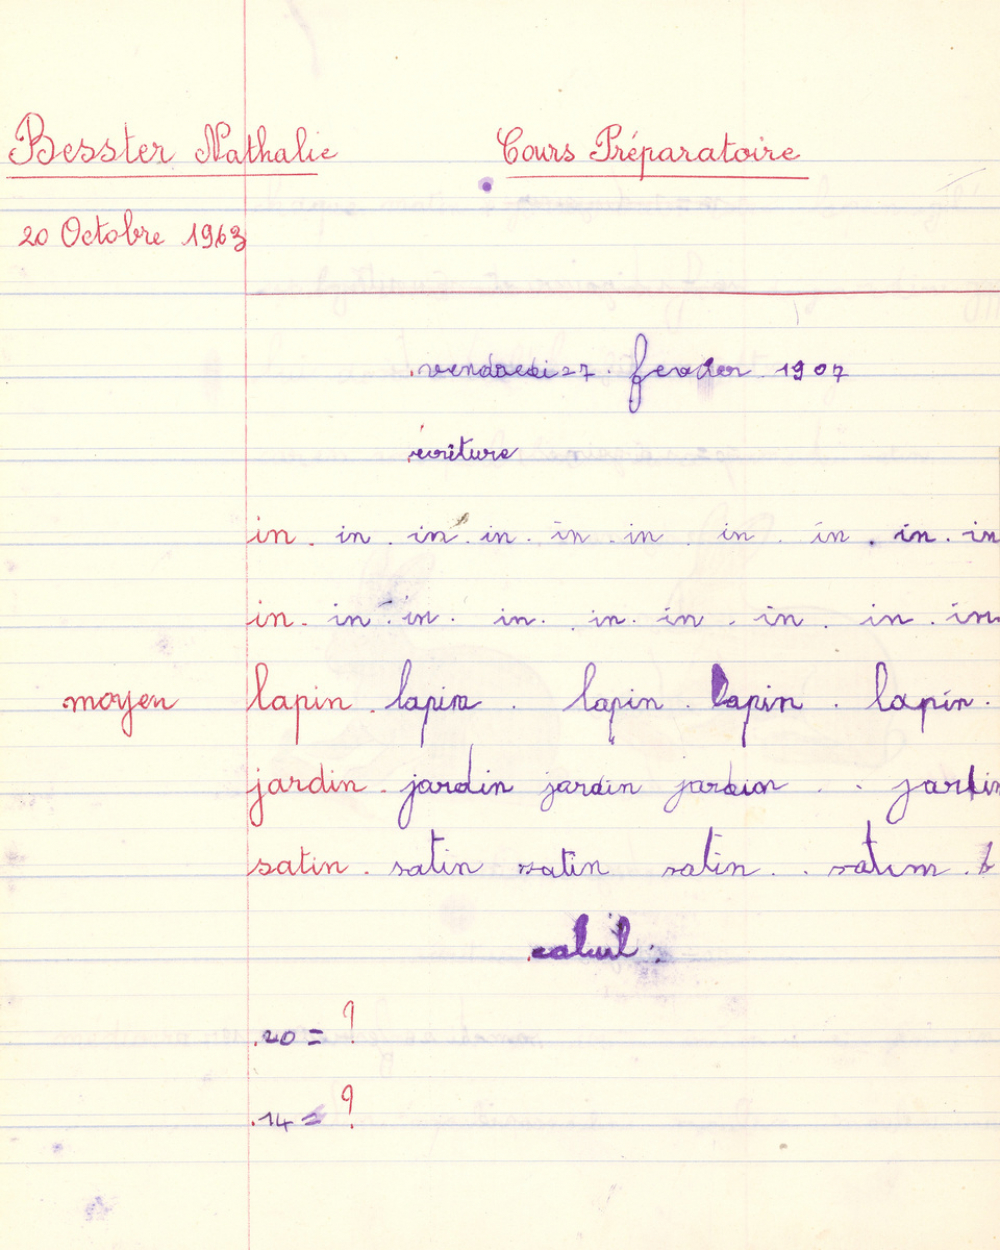 Besster Nathalie Cours Préparatoire
20 Octobre 1963
vendredi 27 fevrier 1907
écriture
in . in . in . in . in . in . in . in . in . in
in . in . in . in . in . in . in . in . in
moyen lapin . lapin . lapin . lapin . lapin .
jardin . jardin jardin jardin . . jardin
satin . satin satin satin . . satim . t
calcul .
.20 = ?
.14 = ?